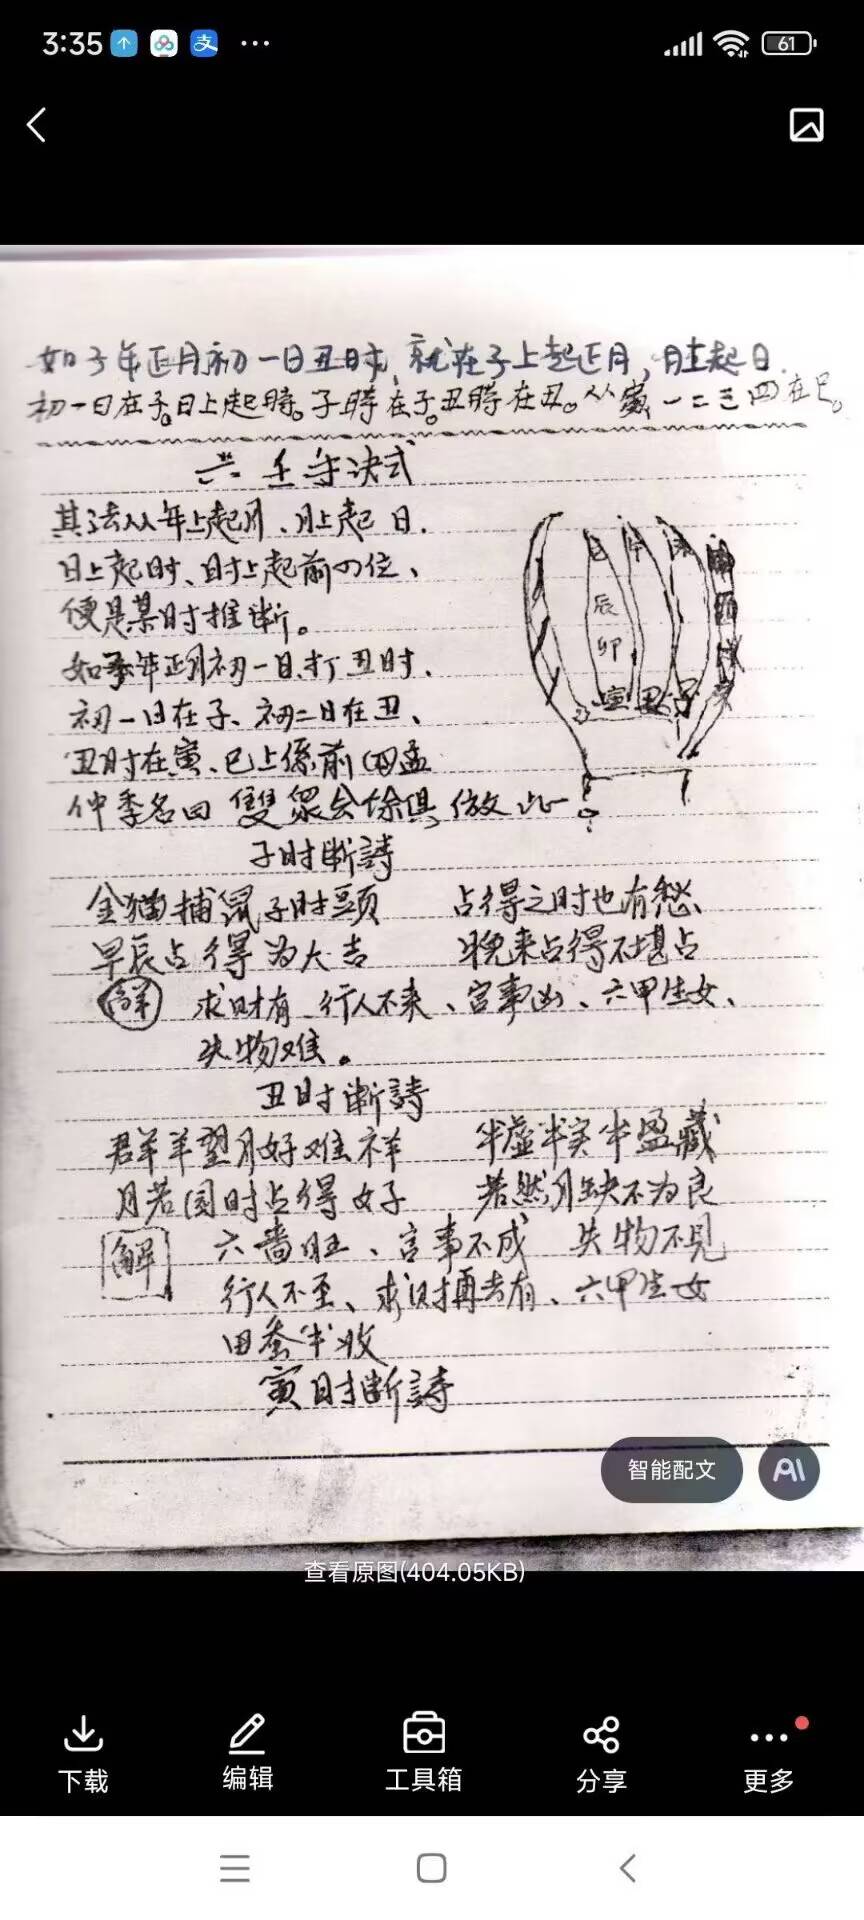 3:35
61
如子年正月初一日丑时,就在子上起正月,月上起日.
初一日在子。日上起時。子時在子。丑時在丑。从寅一二三四在巳。
六壬手决式
其法从年上起月、月上起日.
日上起时、时上起前四位、
便是某时推断。
如子年正月初一日、打丑时.
初一日在子、初二日在丑、
丑时在寅、巳上係前四孟
仲季名曰 倣此
巳 午 未 申
辰 酉
卯 戌
寅 丑 子 亥
子时断詩
金猫捕鼠子时头 占得之时也有愁、
早辰占得为大吉 晚来占得不堪占
解 求财有、行人不来、官事凶、六甲生女、
失物难。
丑时断詩
群羊望月好难祥 半虚半实半盈藏
月若园时占得好 若然月缺不为良
解 六畜旺、官事不成 失物不見
行人不至、求财再去有、六甲生女
田蚕半收
寅时断詩
智能配文
AI
查看原图(404.05KB)
下载
编辑
工具箱
分享
更多